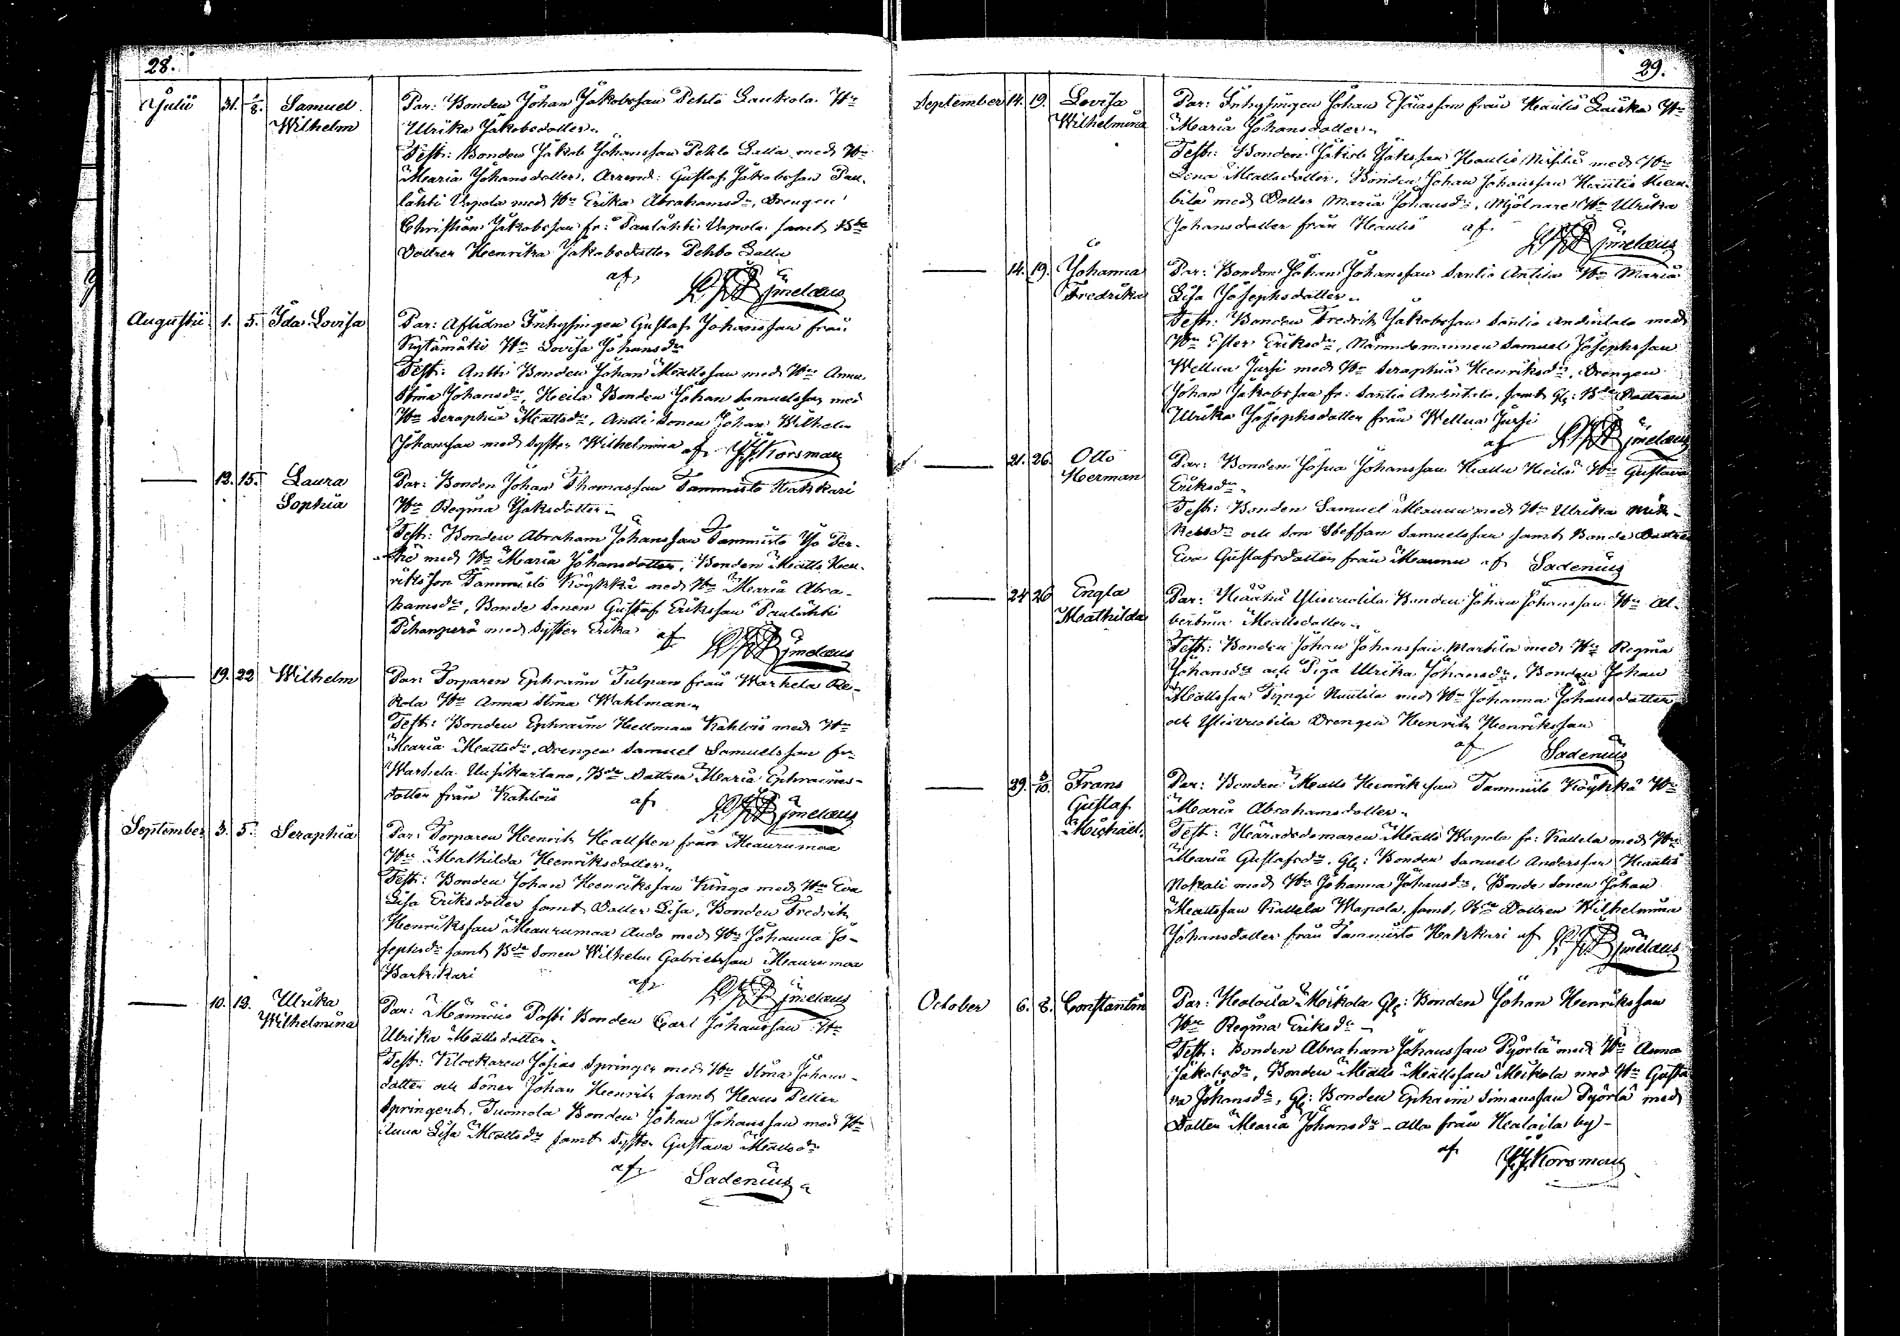 28.
Julii 31. 1/8. Samuel Wilhelm
Par: Bonden Johan Jakobsson Pehto Laukola H:u
Ulrika Jakobsdotter.
Test: Bonden Jakob Johansson Pehto Lalla med H:u
Maria Johansdotter. Arrend: Gustaf Jakobsson Pau-
lahti Uapola med H:u Erika Abrahamsd:r, Drengen
Christian Jakobsson fr: Paulahti Uapola samt B:de
Dottren Henrika Jakobsdotter Pehto Lalla
af
Augusti. 1. 5. Ida Lovisa
Par: Aflidne Inhysingen Gustaf Johansson från
H:u Lovisa Johansd:r
Test: Antti Bonden Johan Mattsson med H:u Anna
Stina Johansd:r, Heilä Bonden Johan Samuelsson med
H:u Seraphia Mattsd:r, Antti Sonen Johan Wilhelm
Johansson med syster Wilhelmina af J.J. Korsman
13. 15. Laura Sophia
Par: Bonden Johan Thomasson Tammisto Hakkari
H:u Regina Isaksdotter
Test: Bonden Abraham Johansson Tammisto Yö Per-
med H:u Maria Johansdotter, Bonden Matts Hen-
riksson Tammisto Köykkä med H:u Maria Abra-
hamsd:r, Bonde Sonen Gustaf Eriksson Paulahti
Pihanperä med syster Erika af
19. 22 Wilhelm
Par: Torparen Ephraim Tulpan från Warhela Re-
kola H:u Anna Stina Wahlman.
Test: Bonden Ephraim Hellman Kahlois med H:u
Maria Mattsd:r, Drengen Samuel Samuelsson fr:
Warhela Uusikartano, B:de Dottren Maria Ephraims-
dotter från Kahlois af
September 3. 5. Seraphia
Par: Torparen Henrik Hallsten från Maurumaa
H:u Mathilda Henriksdotter.
Test: Bonden Johan Henriksson Kingo med H:u Eva
Lisa Eriksdotter samt Dotter Lisa, Bonden Fredrik
Henriksson Maurumaa Audo med H:u Johanna Jo-
sephsd:r samt B:de Sonen Wilhelm Gabrielsson Maurumaa
Barkkari af
10. 13. Ulrika Wilhelmina
Par: Männäis Passi Bonden Carl Johansson H:u
Ulrika Mattsdotter.
Test: Klockaren Josias Springer med H:u Stina Johans-
dotter och söner Johan Henrik samt Klaus Petter
Springert. Tuomola Bonden Johan Johansson med H:u
Anna Lisa Mattsd:r samt syster Gustava Mattsd:r
af Sadenius
29.
September 14. 19. Lovisa Wilhelmina
Par: Inhysingen Johan Esaiasson från Hautis Lauska H:u
Maria Johansdotter.
Test: Bonden Jakob Isaksson Hautis Nisilä med H:u
Lena Mattsdotter. Bonden Johan Johansson Hautis
med Dotter Maria Johansd:r, Mjölnare H:u Ulrika
Johansdotter från Hautis af.
14. 19. Johanna Fredrika
Par: Bonden Johan Johansson Santio Antila H:u Maria
Lisa Josephsdotter.
Test: Bonden Fredrik Jakobsson Santio Andintalo med
H:u Ester Eriksd:r, Nämndemannen Samuel Josephsson
Wellua Jussi med H:u Seraphia Henriksd:r, Drengen
Johan Jakobsson fr: Santio Andintalo samt Gl: B:de Dottren
Ulrika Josephsdotter från Wellua Jussi
af
21. 26. Otto Herman
Par: Bonden Josua Johansson Hallu Heilä H:u Gustava
Eriksd:r
Test: Bonden Samuel Maunu med H:u Ulrika Mik-
kelsd:r och son Steffan Samuelsson samt Bonde Dottren
Eva Gustafsdotter från Maunu af Sadenius
24 26 Engla Mathilda
Par: Hautis Ylisuolila Bonden Johan Johansson H:u Al-
bertina Mattsdotter.
Test: Bonden Johan Johansson Martila med H:u Regina
Johansd:r och Piga Ulrika Johansd:r, Bonden Johan
Mattsson med H:u Johanna Johansdotter
och Drengen Henrik Henriksson
af Sadenius
29. 3/10. Frans Gustaf Michael.
Par: Bonden Matts Henriksson Tammisto Köykkä H:u
Maria Abrahamsdotter.
Test: Häradsdomaren Matts Wapola fr: Kattela med H:u
Maria Gustafsd:r. Gl: Bonden Samuel Andersson Hautis
Nokali med H:u Johanna Johansd:r, Bonde Sonen Johan
Mattsson Kattela Wapola, samt B:de Dottren Wilhelmina
Johansdotter från Tammisto Hakkari af
October 6. 8. Constantin
Par: Healoila Meikola Gl: Bonden Johan Henriksson
H:u Regina Eriksd:r
Test: Bonden Abraham Johansson Pyörlä med H:u Anna
Jakobsd:r, Bonden Matts Mattsson Meikola med H:u Gusta
va Johansd:r, Gl: Bonden Ephraim Simonsson Pyörlä med
Dotter Maria Johansd:r - alla från Healoila by -
af J.J. Korsman